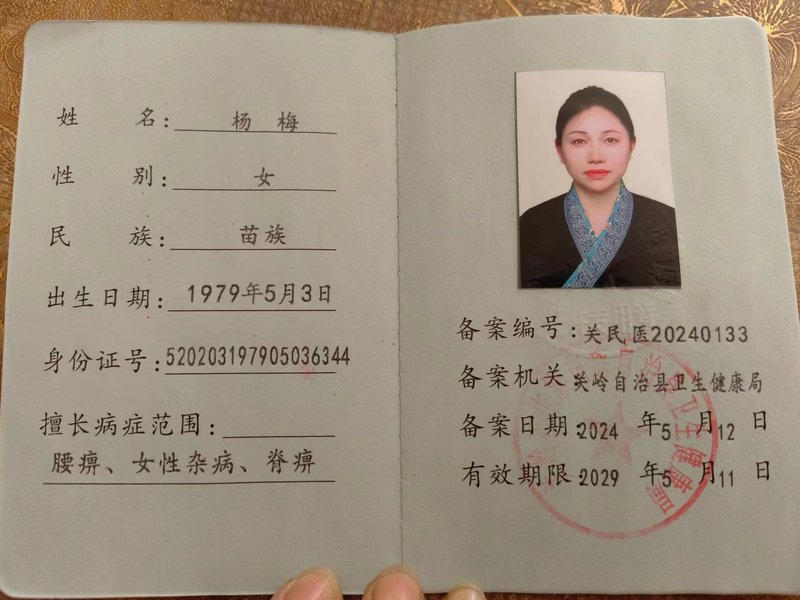 姓名：杨梅
性别：女
民族：苗族
出生日期：1979年5月3日
身份证号：520203197905036344
擅长病症范围：
腰痹、女性杂病、脊痹
备案编号：关民医20240133
备案机关：关岭自治县卫生健康局
备案日期：2024年5月12日
有效期限：2029年5月11日
自治县卫生健康局